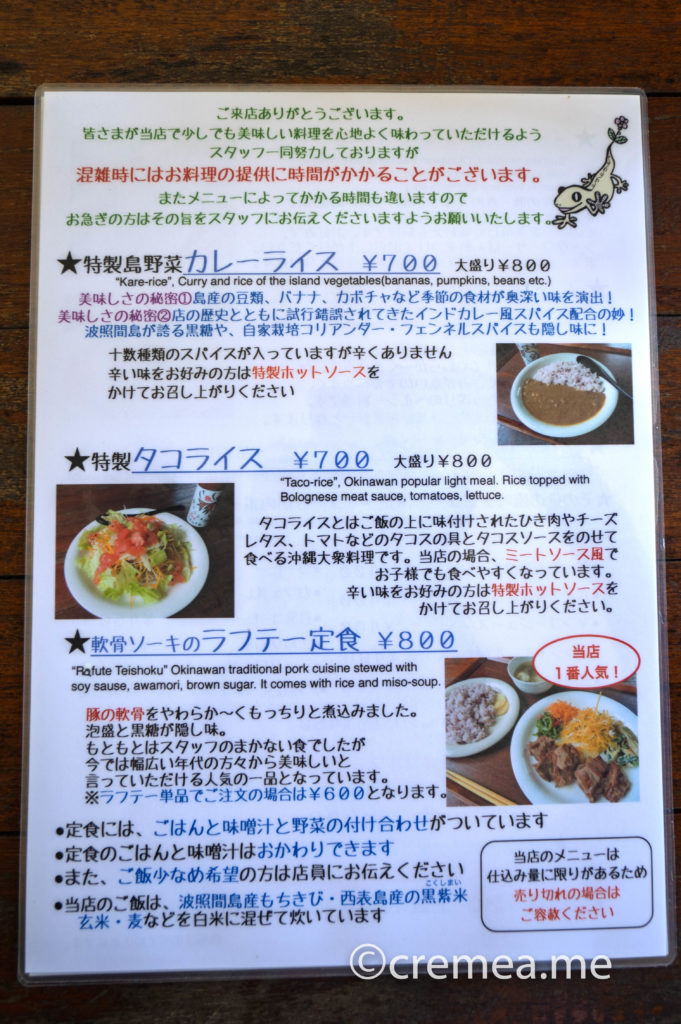 ご来店ありがとうございます。
皆さまが当店で少しでも美味しい料理を心地よく味わっていただけるよう
スタッフ一同努力しておりますが
混雑時にはお料理の提供に時間がかかることがございます。
またメニューによってかかる時間も違いますので
お急ぎの方はその旨をスタッフにお伝えくださいますようお願いいたします。
★特製島野菜カレーライス ¥700 大盛り¥800
"Kare-rice", Curry and rice of the island vegetables(bananas, pumpkins, beans etc.)
美味しさの秘密①島産の豆類、バナナ、カボチャなど季節の食材が奥深い味を演出！
美味しさの秘密②店の歴史とともに試行錯誤されてきたインドカレー風スパイス配合の妙！
波照間島が誇る黒糖や、自家栽培コリアンダー・フェンネルスパイスも隠し味に！
十数種類のスパイスが入っていますが辛くありません
辛い味をお好みの方は特製ホットソースを
かけてお召し上がりください
★特製タコライス ¥700 大盛り¥800
"Taco-rice", Okinawan popular light meal. Rice topped with
Bolognese meat sauce, tomatoes, lettuce.
タコライスとはご飯の上に味付けされたひき肉やチーズ
レタス、トマトなどのタコスの具とタコスソースをのせて
食べる沖縄大衆料理です。当店の場合、ミートソース風で
お子様でも食べやすくなっています。
辛い味をお好みの方は特製ホットソースを
かけてお召し上がりください。
★軟骨ソーキのラフテー定食 ¥800
"Rafute Teishoku" Okinawan traditional pork cuisine stewed with
soy sause, awamori, brown sugar. It comes with rice and miso-soup.
当店
1番人気！
豚の軟骨をやわらか〜くもっちりと煮込みました。
泡盛と黒糖が隠し味。
もともとはスタッフのまかない食でしたが
今では幅広い年代の方々から美味しいと
言っていただける人気の一品となっています。
※ラフテー単品でご注文の場合は¥600となります。
●定食には、ごはんと味噌汁と野菜の付け合わせがついています
●定食のごはんと味噌汁はおかわりできます
●また、ご飯少なめ希望の方は店員にお伝えください
こくしまい
●当店のご飯は、波照間島産もちきび・西表島産の黒紫米
玄米・麦などを白米に混ぜて炊いています
当店のメニューは
仕込み量に限りがあるため
売り切れの場合は
ご容赦ください
©cremea.me